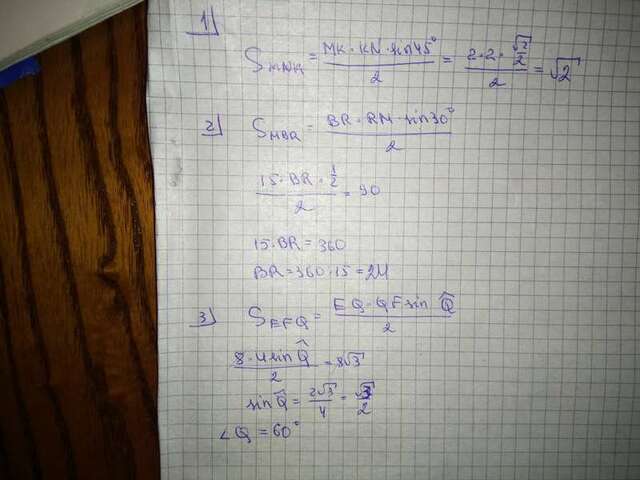 1) S_MNK = (MK · KN · sin45°)/2 = (2 · 2 · √2/2)/2 = √2
2) S_MBR = (BR · RM · sin30°)/2
(15 · BR · 1/2)/2 = 90
15 · BR = 360
BR = 360 : 15 = 24
3) S_EFQ = (EQ · QF sin Q̂)/2
(8 · 4 sin Q̂)/2 = 8√3
sin Q̂ = 2√3/4 = √3/2
∠Q = 60°